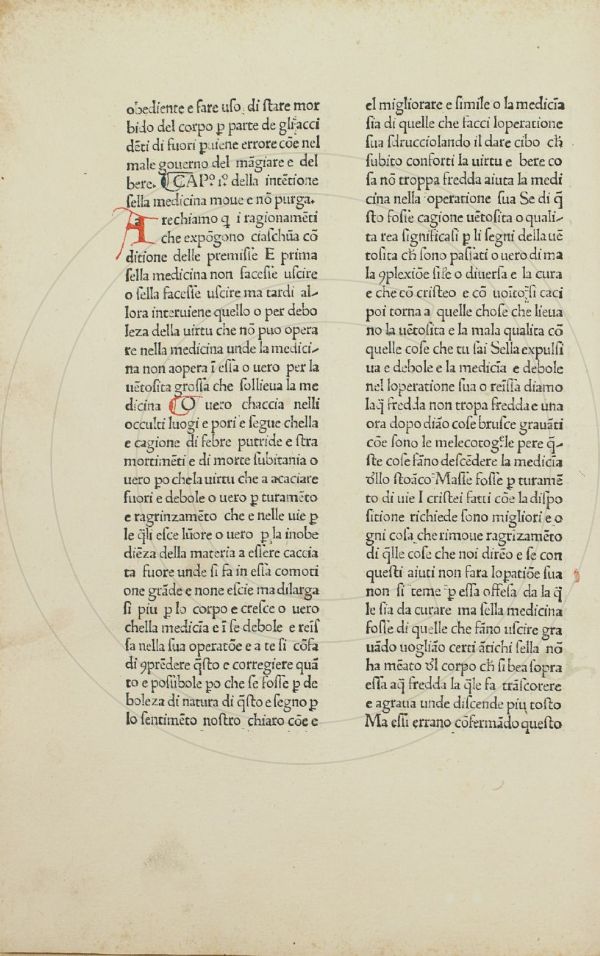 obediente e fare uſo, di ſtare mor
bido del corpo ꝑ parte de gli acci
dẽti di fuori ꝑuiene errore cõe nel
male gouerno del mãgiare e del
bere. CAPº. iº. della intẽtione
ſella medicina moue e nõ purga.
Arechiamo q̃ i ragionamẽti
che expõgono ciaſchũa cõ
ditione delle premiſſe E prima
ſella medicina non faceſſe uſcire
o ſella faceſſe uſcire ma tardi al-
lora interuiene quello o per debo
leza della uirtu che nõ puo opera
re nella medicina unde la medici-
na non aopera ĩ eſſa o uero per la
uẽtoſita groſſa che ſollieua la me
dicina O uero chaccia nelli
occulti luogi e pori e ſegue chella
e cagione di febre putride e ſtra
mortimẽti e di morte ſubitania o
uero po chela uirtu che a acaciare
fuori e debole o uero ꝑ turamẽto
e ragrinzamẽto che e nelle uie ꝑ
le q̃li eſce lũore o uero ꝑ la inobe
diẽza della materia a eſſere caccia
ta fuore unde ſi fa in eſſa comoti
one grãde e none eſcie ma dilarga
ſi piu ꝑ lo corpo e creſce o uero
chella medicĩa e ĩ ſe debole e reiſ
ſa nella ſua operatõe e a te ſi cõfa
di ꝯprẽdere q̃ſto e corregiere quã
to e poſſibole po che ſe foſſe ꝑ de
boleza di natura di q̃ſto e ſegno ꝑ
lo ſentimẽto noſtro chiaro cõe e
el migliorare e ſimile o la medicĩa
ſia di quelle che facci loperatione
ſua ſdrucciolando il dare cibo ch̃
ſubito conforti la uirtu e bere co
ſa nõ troppa fredda aiuta la medi
cina nella operatione ſua Se di q̃
ſto foſſe cagione uẽtoſita o quali-
ta rea ſignificaſi ꝑ li ſegni della uẽ
toſita ch̃ ſono paſſati o uero di ma
la ꝯplexiõe ſile o diuerſa e la cura
e che cõ criſteo e cõ uoĩto, ſi caci
poi torna a quelle choſe che lieua
no la uẽtoſita e la mala qualita cõ
quelle coſe che tu ſai Sella expulſi
ua e debole e la medicĩa e debole
nel loperatione ſua o reiſſa diamo
laq̃ fredda non tropa fredda e una
ora dopo dião coſe bruſce grauãti
cõe ſono le melecotogne le pere q̃-
ſte coſe fãno deſcẽdere la medicĩa
dllo ſtoãco Maſſe foſſe ꝑ turamẽ
to di uie I criſtei fatti cõe la diſpo
ſitione richiede ſono migliori e o
gni coſa che rimoue ragrizamẽto
di q̃lle coſe che noi dirẽo e ſe con
queſti aiuti non fara lopatiõe ſua
non ſi teme ꝑ eſſa offeſa da la q̃
le ſia da curare ma ſella medicina
foſſe di quelle che fãno uſcire gra
uãdo uoglião certi ãtichi ſella nõ
ha mẽato dl corpo ch̃ ſi bea ſopra
eſſa aq̃ fredda la q̃le fa trãſcorere
e agraua unde diſcende piu toſto
Ma eſſi errano cõfermãdo queſto